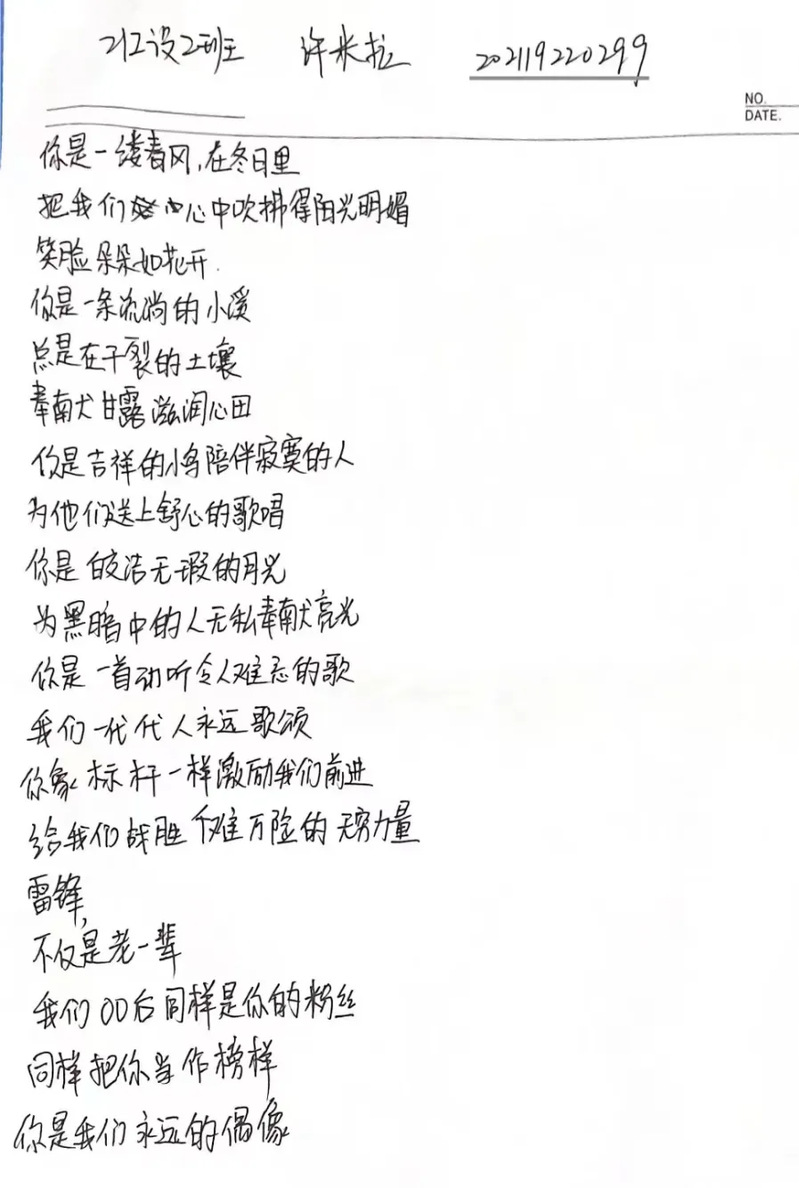 21工设2班 许米拉 202119220299
NO.
DATE.
你是一缕春风,在冬日里
把我们心中吹拂得阳光明媚
笑脸朵朵如花开.
你是一条流淌的小溪
总是在干裂的土壤
奉献甘露滋润心田
你是吉祥的小鸟陪伴寂寞的人
为他们送上舒心的歌唱
你是皎洁无瑕的月光
为黑暗中的人无私奉献亮光
你是一首动听令人难忘的歌
我们一代代人永远歌颂
你象标杆一样激励我们前进
给我们战胜千难万险的无穷力量
雷锋,
不仅是老一辈
我们00后同样是你的粉丝
同样把你当作榜样
你是我们永远的偶像